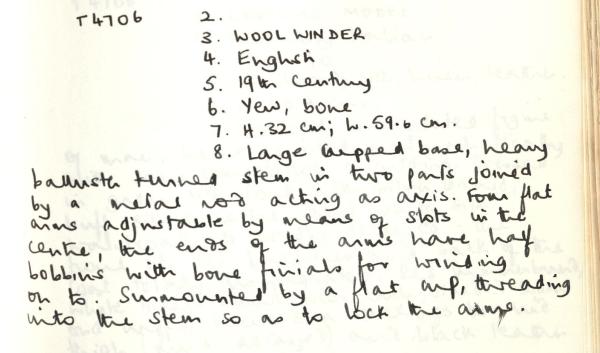 T4706 2.
3. WOOL WINDER
4. English
5. 19th Century
6. Yew, bone
7. H.32 cm; W.59.6 cm.
8. Large cupped base, heavy
baluster turned stem in two parts joined
by a metal rod acting as axis. Four flat
arms adjustable by means of slots in the
centre, the ends of the arms have half
bobbins with bone finials for winding
on to. Surmounted by a flat cup, threading
into the stem so as to lock the arms.